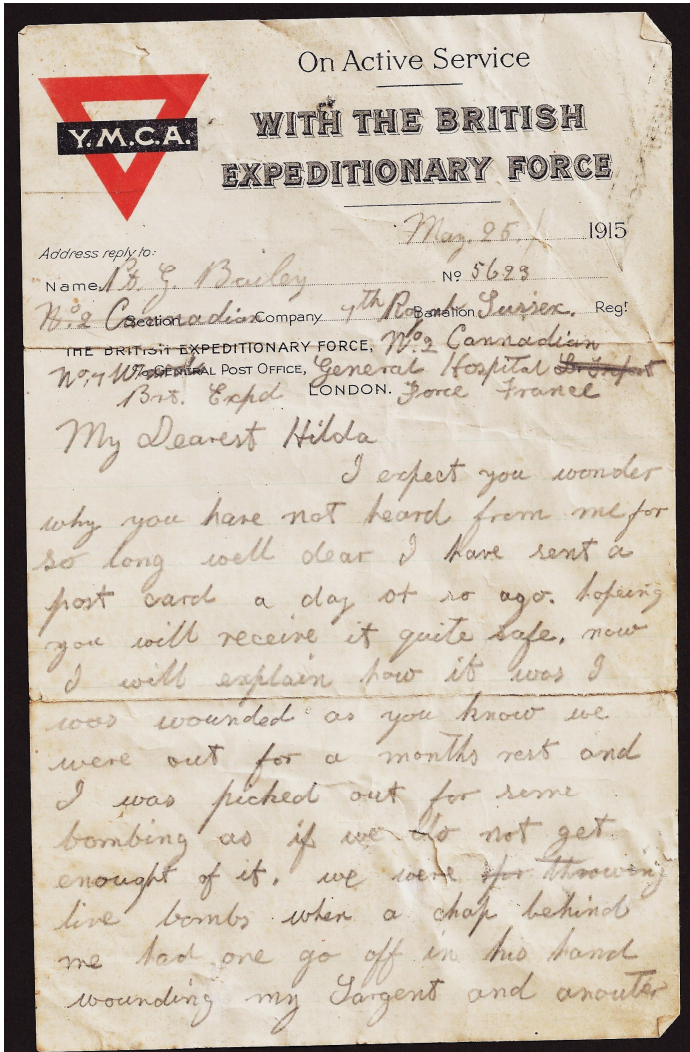 On Active Service
WITH THE BRITISH
EXPEDITIONARY FORCE
Y.M.C.A.
May. 25. 1915
Address reply to:
Name Pt. G. Bailey No 5623
No. 2 Cannadian Section Company 7th Royal Battalion Sussex. Regt
THE BRITISH EXPEDITIONARY FORCE, No. 2 Cannadian
No. 7 c/o GENERAL POST OFFICE, General Hospital
Brt. Expd LONDON. Force France
My Dearest Hilda
I expect you wonder
why you have not heard from me for
so long well dear I have sent a
post card a day or so ago. hopeing
you will receive it quite safe. now
I will explain how it was I
was wounded as you know we
were out for a months rest and
I was picked out for some
bombing as if we do not get
enought of it. we were throwing
live bombs when a chap behind
me had one go off in his hand
wounding my Sargent and anouter